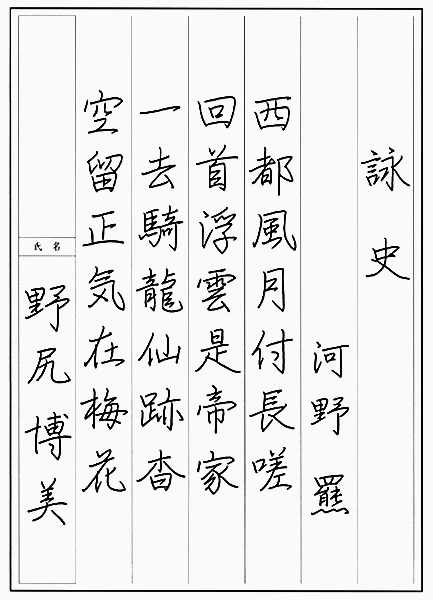 詠史
河野 羆
西都風月付長嗟
回首浮雲是帝家
一去騎龍仙跡杳
空留正気在梅花
氏 名
野尻博美